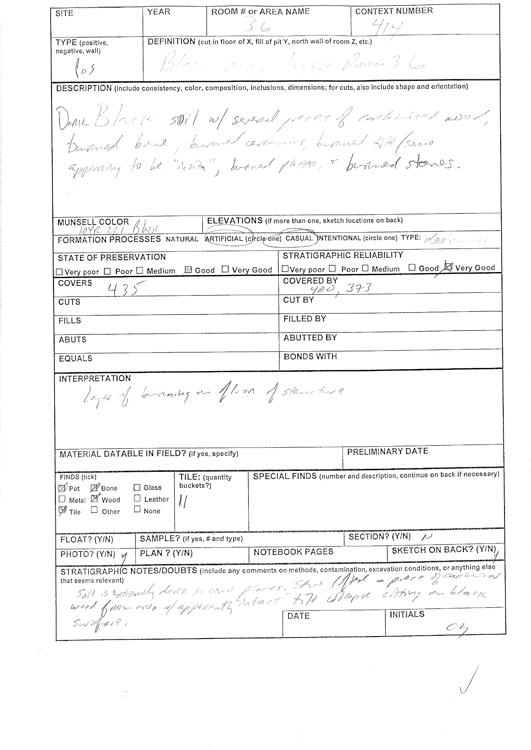 SITE YEAR ROOM # or AREA NAME CONTEXT NUMBER
36 414
TYPE (positive, negative, wall) DEFINITION (cut in floor of X, fill of pit Y, north wall of room Z, etc.)
Pos Room 36
DESCRIPTION (include consistency, color, composition, inclusions, dimensions; for cuts, also include shape and orientation)
Dark Black soil w/ several pieces of carbonized wood,
burned bone, burned ceramics, burned tile/some
appearing to be "insitu", burned plaster, + burned stones.
MUNSELL COLOR ELEVATIONS (if more than one, sketch locations on back)
10YR 2/1 Black
FORMATION PROCESSES NATURAL ARTIFICIAL (circle one) CASUAL INTENTIONAL (circle one) TYPE:
STATE OF PRESERVATION STRATIGRAPHIC RELIABILITY
Very poor Poor Medium Good Very Good Very poor Poor Medium Good Very Good
COVERS 435 COVERED BY 400, 373
CUTS CUT BY
FILLS FILLED BY
ABUTS ABUTTED BY
EQUALS BONDS WITH
INTERPRETATION
layer of burning on floor of structure
MATERIAL DATABLE IN FIELD? (if yes, specify) PRELIMINARY DATE
FINDS (tick) TILE: (quantity buckets?) SPECIAL FINDS (number and description, continue on back if necessary)
Pot Bone Glass 11
Metal Wood Leather
Tile Other None
FLOAT? (Y/N) SAMPLE? (if yes, # and type) SECTION? (Y/N) N
PHOTO? (Y/N) Y PLAN ? (Y/N) NOTEBOOK PAGES SKETCH ON BACK? (Y/N) Y
STRATIGRAPHIC NOTES/DOUBTS (include any comments on methods, contamination, excavation conditions, or anything else that seems relevant)
Soil is extremely deep in some places, a piece of carbonized
wood from area of apparently intact tile collapse sitting on black
surface.
DATE INITIALS